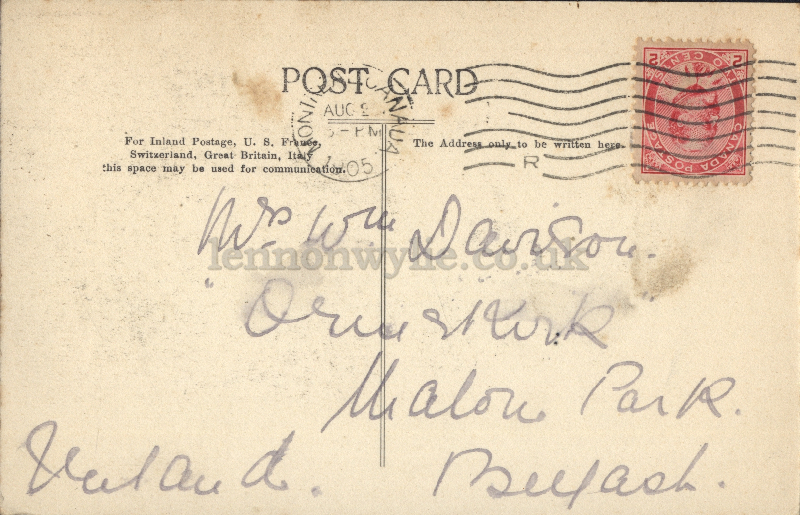 POST CARD
MONTREAL CANADA
AUG 2
5-PM
1905
R
2 TWO CENTS 2
CANADA POSTAGE
For Inland Postage, U. S. France,
Switzerland, Great Britain, Italy
this space may be used for communication.
The Address only to be written here.
Mrs Wm Davison.
lennonwylie.co.uk
"Ormskirk"
Malone Park.
Belfast.
Ireland.